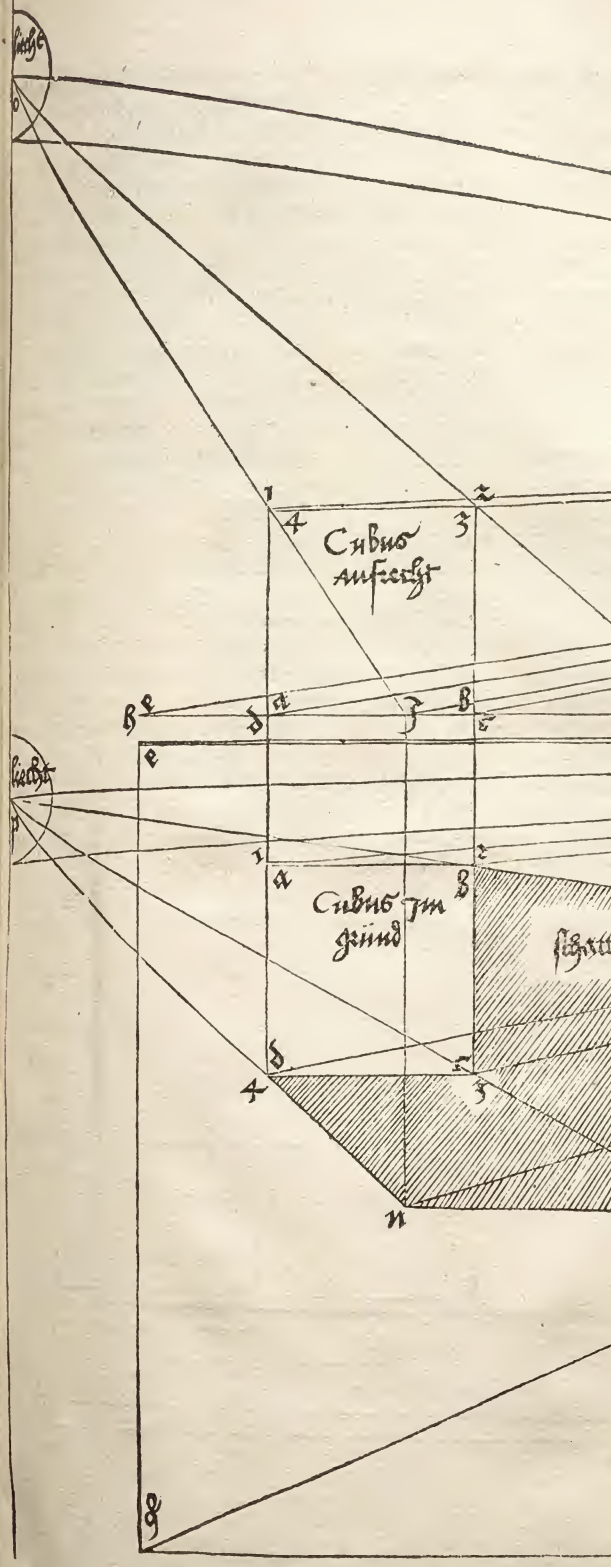 liecht
o
1
2
4
3
Cubus
aufrecht
e
a
b
h
d
f
c
e
liecht
p
1
2
a
b
Cubus jm
gründ
schatt
d
c
4
3
n
g